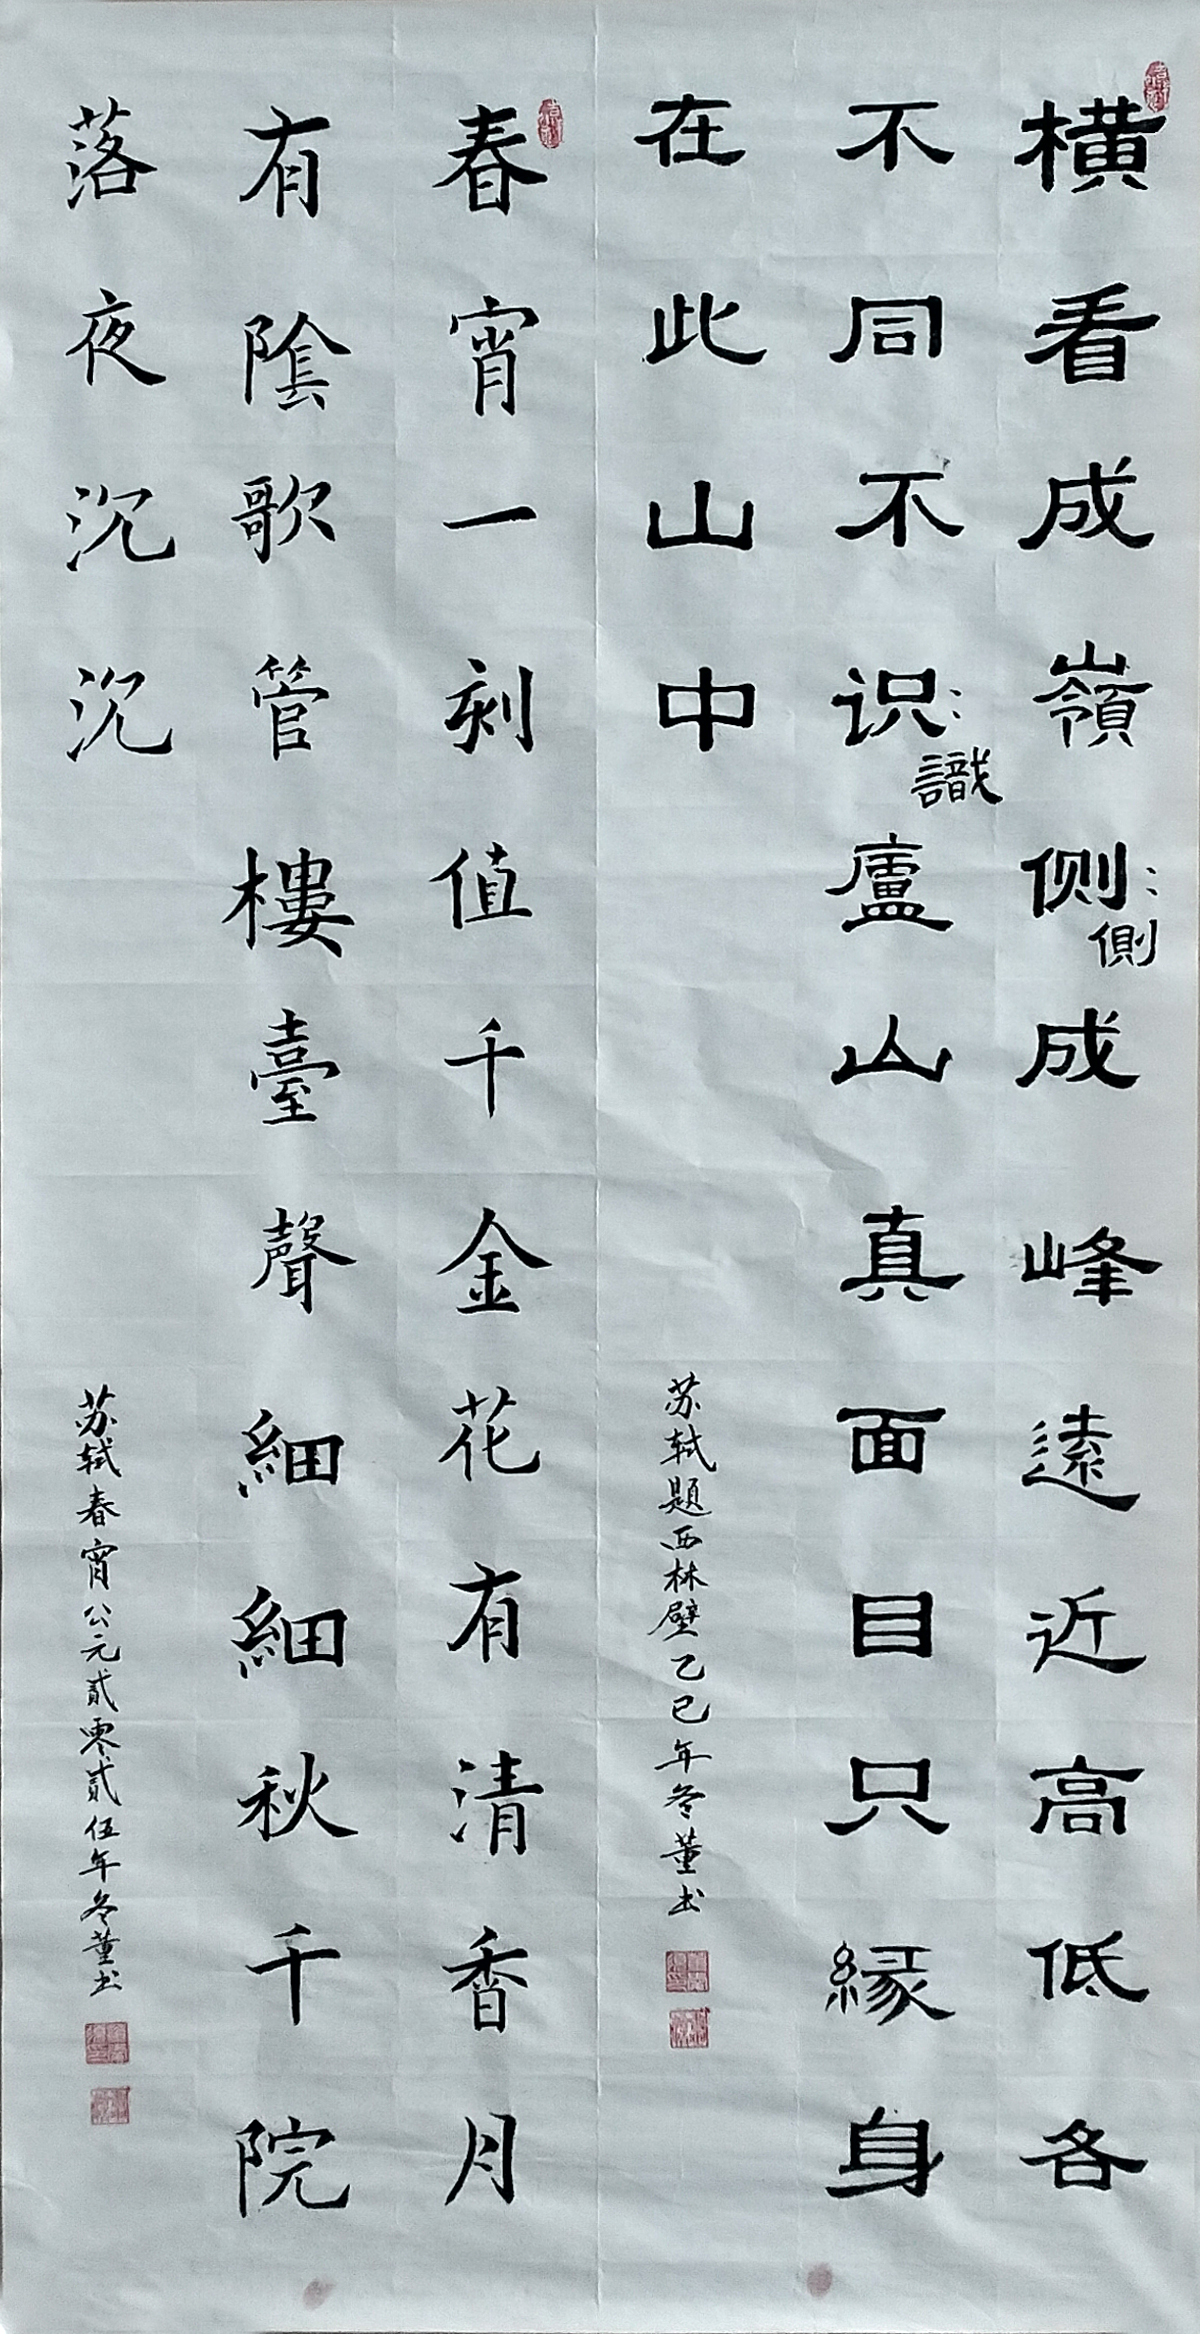 横看成嶺侧成峰遠近高低各
側
不同不识廬山真面目只緣身
識
在此山中
苏轼题西林壁乙巳年冬董书
春宵一刻值千金花有清香月
有陰歌管樓臺聲細細秋千院
落夜沉沉
苏轼春宵公元贰零贰伍年冬董书